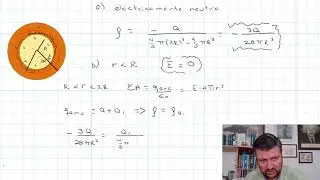 a) eléctricamente neutro
ρ = - Q / (4/3 π(2R)³ - 4/3 πR³) = - 3Q / 28πR³
b) r < R E = 0
R < r < 2R EA = qenc / ε₀ = E·4πr²
qenc = Q + Q₁ ⇒ ρ = ρQ₁
- 3Q / 28πR³ = Q₁ / 4/3 π